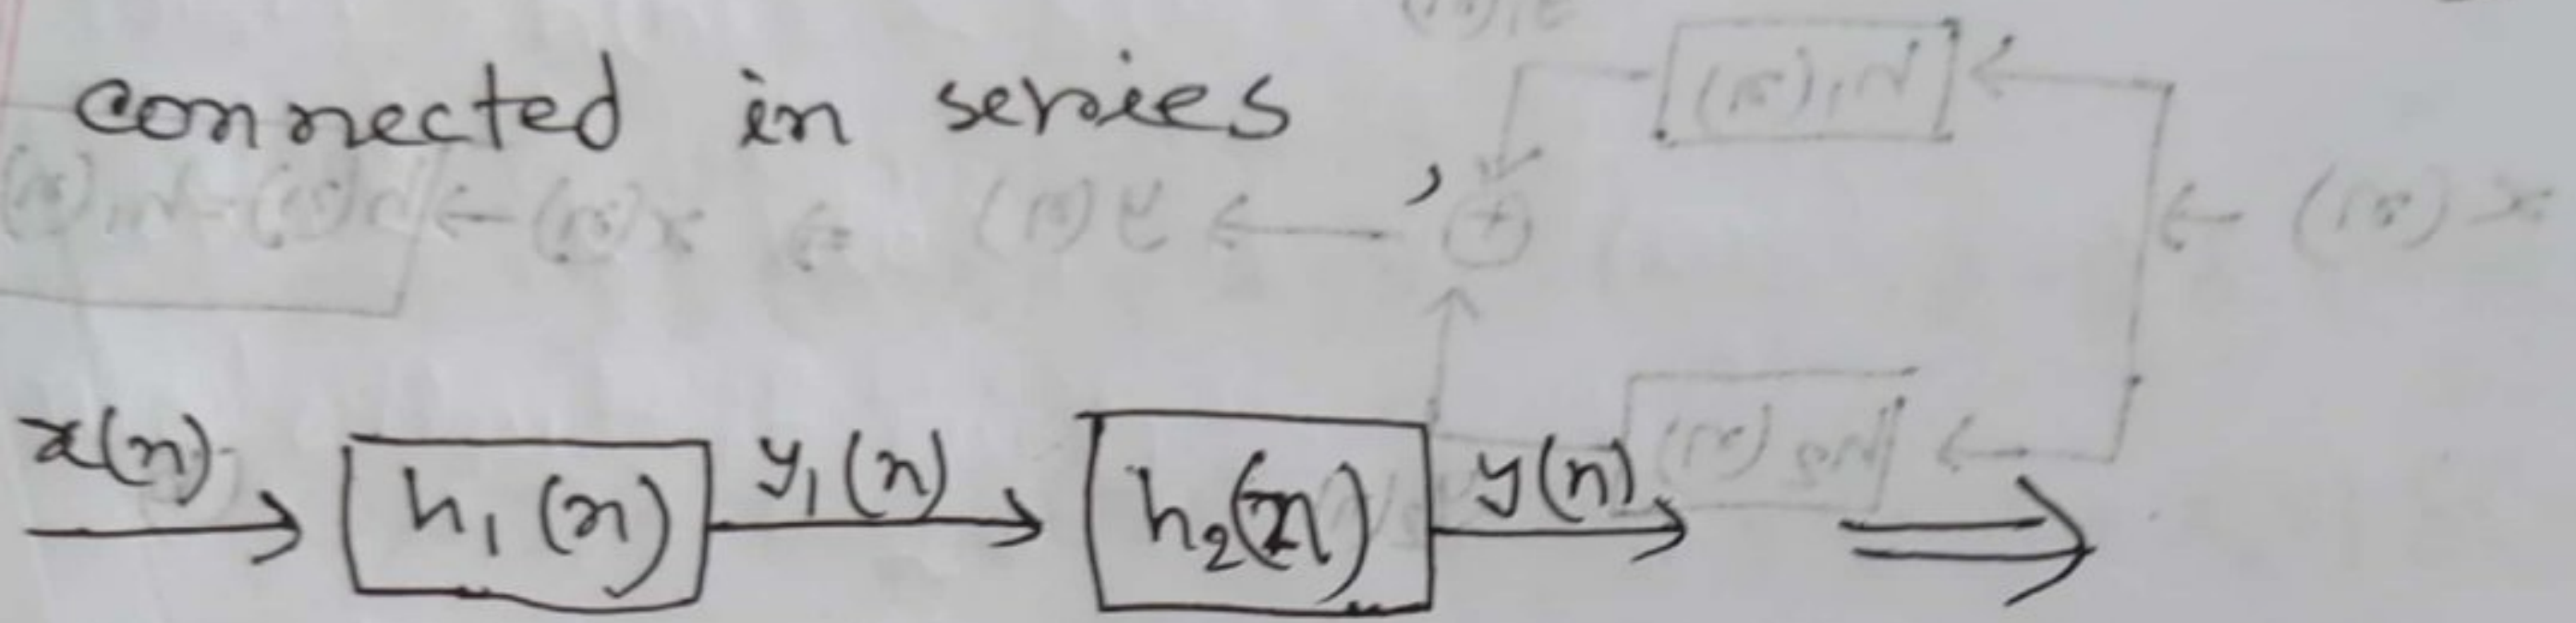 connected in series,
x(n) h₁(n) y₁(n) h₂(n) y(n)